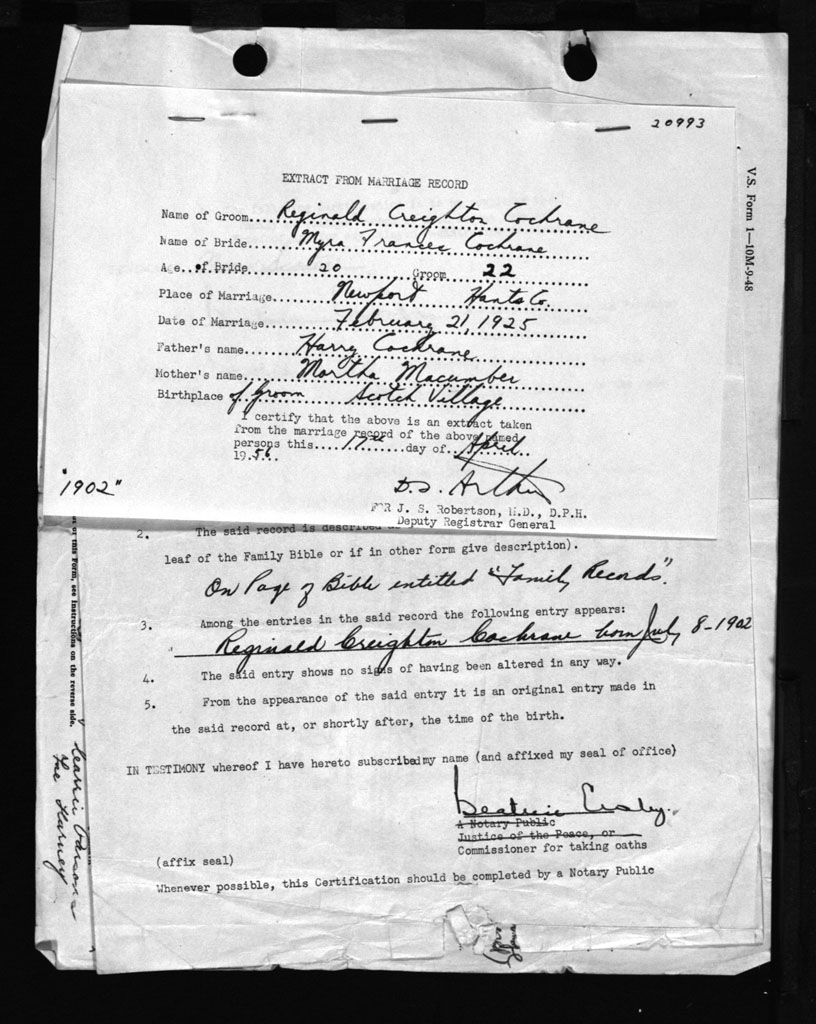 20993
EXTRACT FROM MARRIAGE RECORD
Name of Groom....Reginald Creighton Cochrane
Name of Bride....Myra Frances Cochrane
Age...of Bride.....20.....Groom...22
Place of Marriage....Newport Hants Co.
Date of Marriage....February 21, 1925
Father's name....Harry Cochrane
Mother's name....Martha Macumber
Birthplace of Groom Scotch Village
I certify that the above is an extract taken
from the marriage record of the above named
persons this....17th....day of..April..
19.56..
"1902"
D.S. Arthur
FOR J. S. Robertson, M.D., D.P.H.
Deputy Registrar General
2. The said record is described as
leaf of the Family Bible or if in other form give description).
On Page of Bible entitled "Family Records".
3. Among the entries in the said record the following entry appears:
" Reginald Creighton Cochrane born July 8-1902
4. The said entry shows no signs of having been altered in any way.
5. From the appearance of the said entry it is an original entry made in
the said record at, or shortly after, the time of the birth.
IN TESTIMONY whereof I have hereto subscribed my name (and affixed my seal of office)
Beatrice
A Notary Public
Justice of the Peace, or
Commissioner for taking oaths
(affix seal)
Whenever possible, this Certification should be completed by a Notary Public
V.S. Form 1—10M-9-48
of this Form, see instructions on the reverse side.
Parsons
Harney